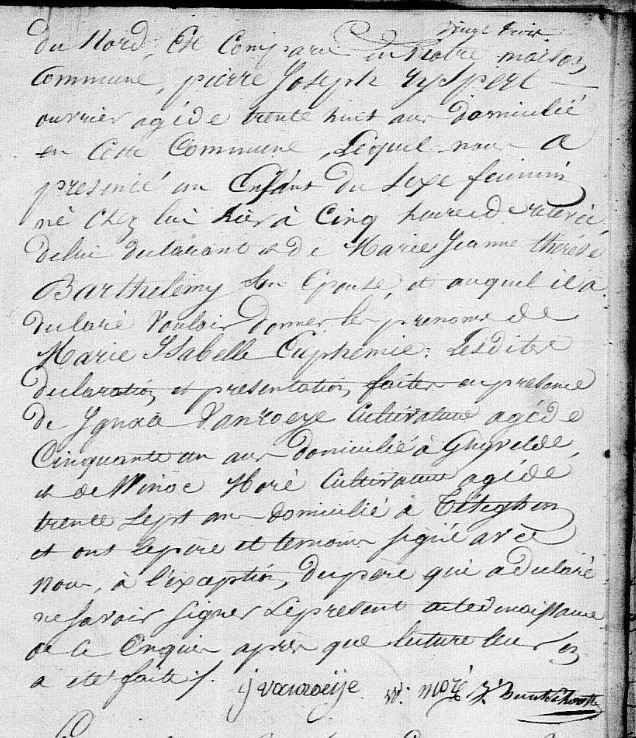 vingt trois
du Nord, Est Comparu en Notre maison
Commune, pierre Joseph
ouvrier agé de trente huit ans domicilié
en Cette Commune, Lequel nous a
présenté un Enfant du Sexe feminin
né Chez lui hier à Cinq heures de relevée,
de lui declarant et de Marie Jeanne therese
Barthelemy Son Epouse, et auquel il a
declaré Vouloir donner les prenoms de
Marie Isabelle Euphemie: Lesdites
declaration et presentation faites en presence
de Ignace Vanroeye Cultivateur agé de
Cinquante un ans domicilié à Ghyvelde,
et de Winoc Moré Cultivateur agé de
trente Sept ans domicilié à Téteghem
et ont le pere et temoins signé avec
nous, à l'exception du pere qui a declaré
ne Savoir Signer Le present acte de naissance
après que lecture leur en
a été faite /.
j vanroeije W: Moré